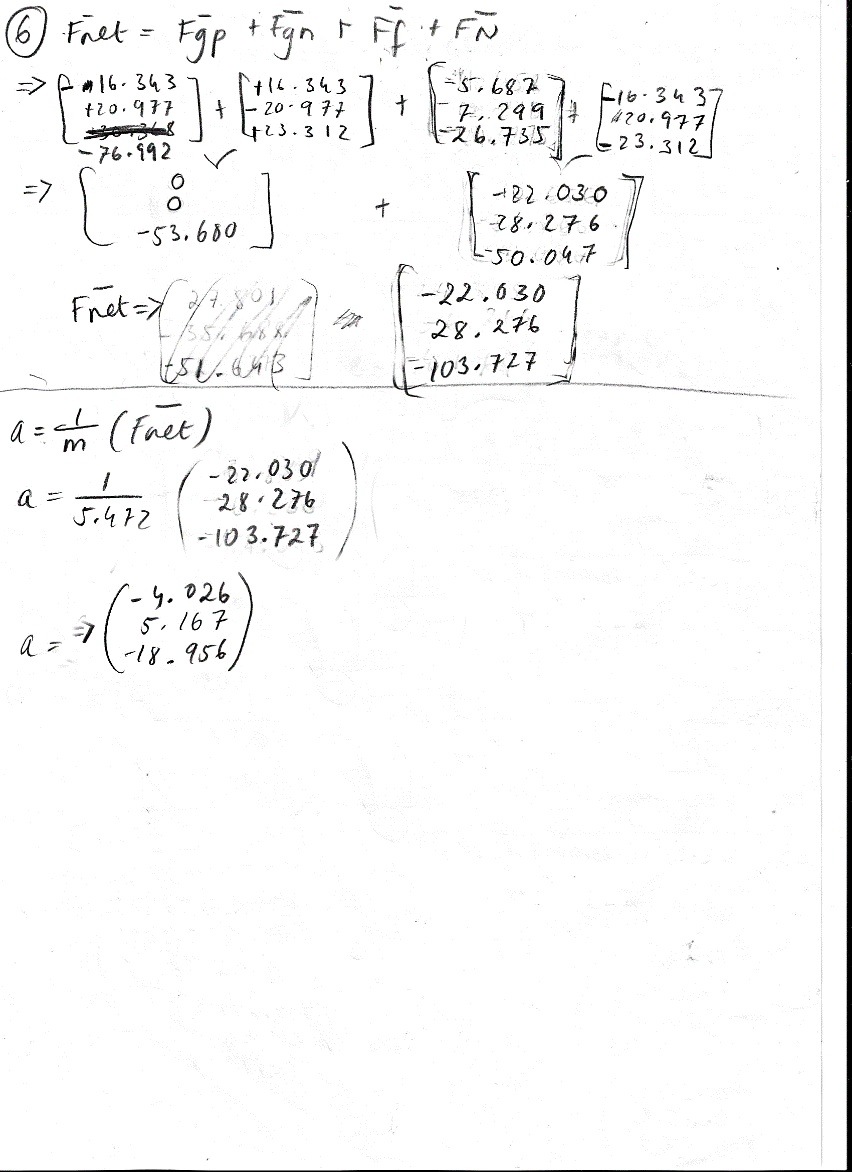 ⑥ F̄net = F̄gp + F̄gn + F̄f + F̄N
=> [-16.343 +20.977 -76.992] + [+16.343 -20.977 +23.312] + [-5.687 7.299 -26.735] + [-16.343 +20.977 -23.312]
=> [0 0 -53.680] ✓ + [-22.030 28.276 -50.047] ✓
F̄net => [-22.030 28.276 -103.727]
a = 1/m (F̄net)
a = 1/5.472 (-22.030 28.276 -103.727)
a = => (-4.026 5.167 -18.956)